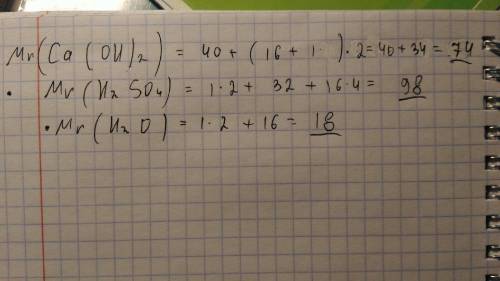 Mr(Ca(OH)2) = 40 + (16 + 1·)·2 = 40 + 34 = 74
· Mr(H2SO4) = 1·2 + 32 + 16·4 = 98
· Mr(H2O) = 1·2 + 16 = 18